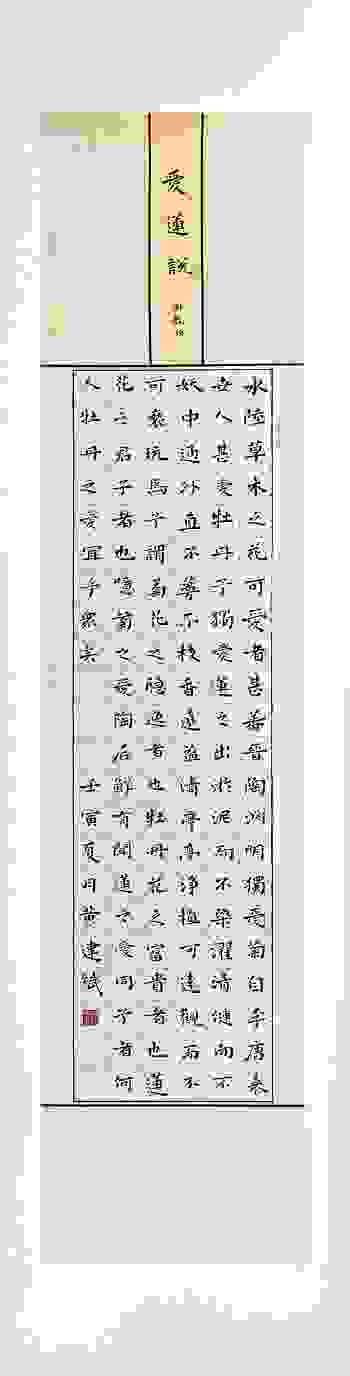 愛蓮說
水陸草木之花可愛者甚蕃晉陶渊明獨愛菊自李唐来
世人甚愛牡丹予獨愛蓮之出淤泥而不染濯清漣而不
妖中通外直不蔓不枝香遠益清亭亭淨植可遠觀而不
可褻玩焉予謂菊花之隱逸者也牡丹花之富貴者也蓮
花之君子者也噫菊之愛陶后鮮有聞蓮之愛同予者何
人牡丹之愛宜乎眾矣 壬寅夏月黄建斌